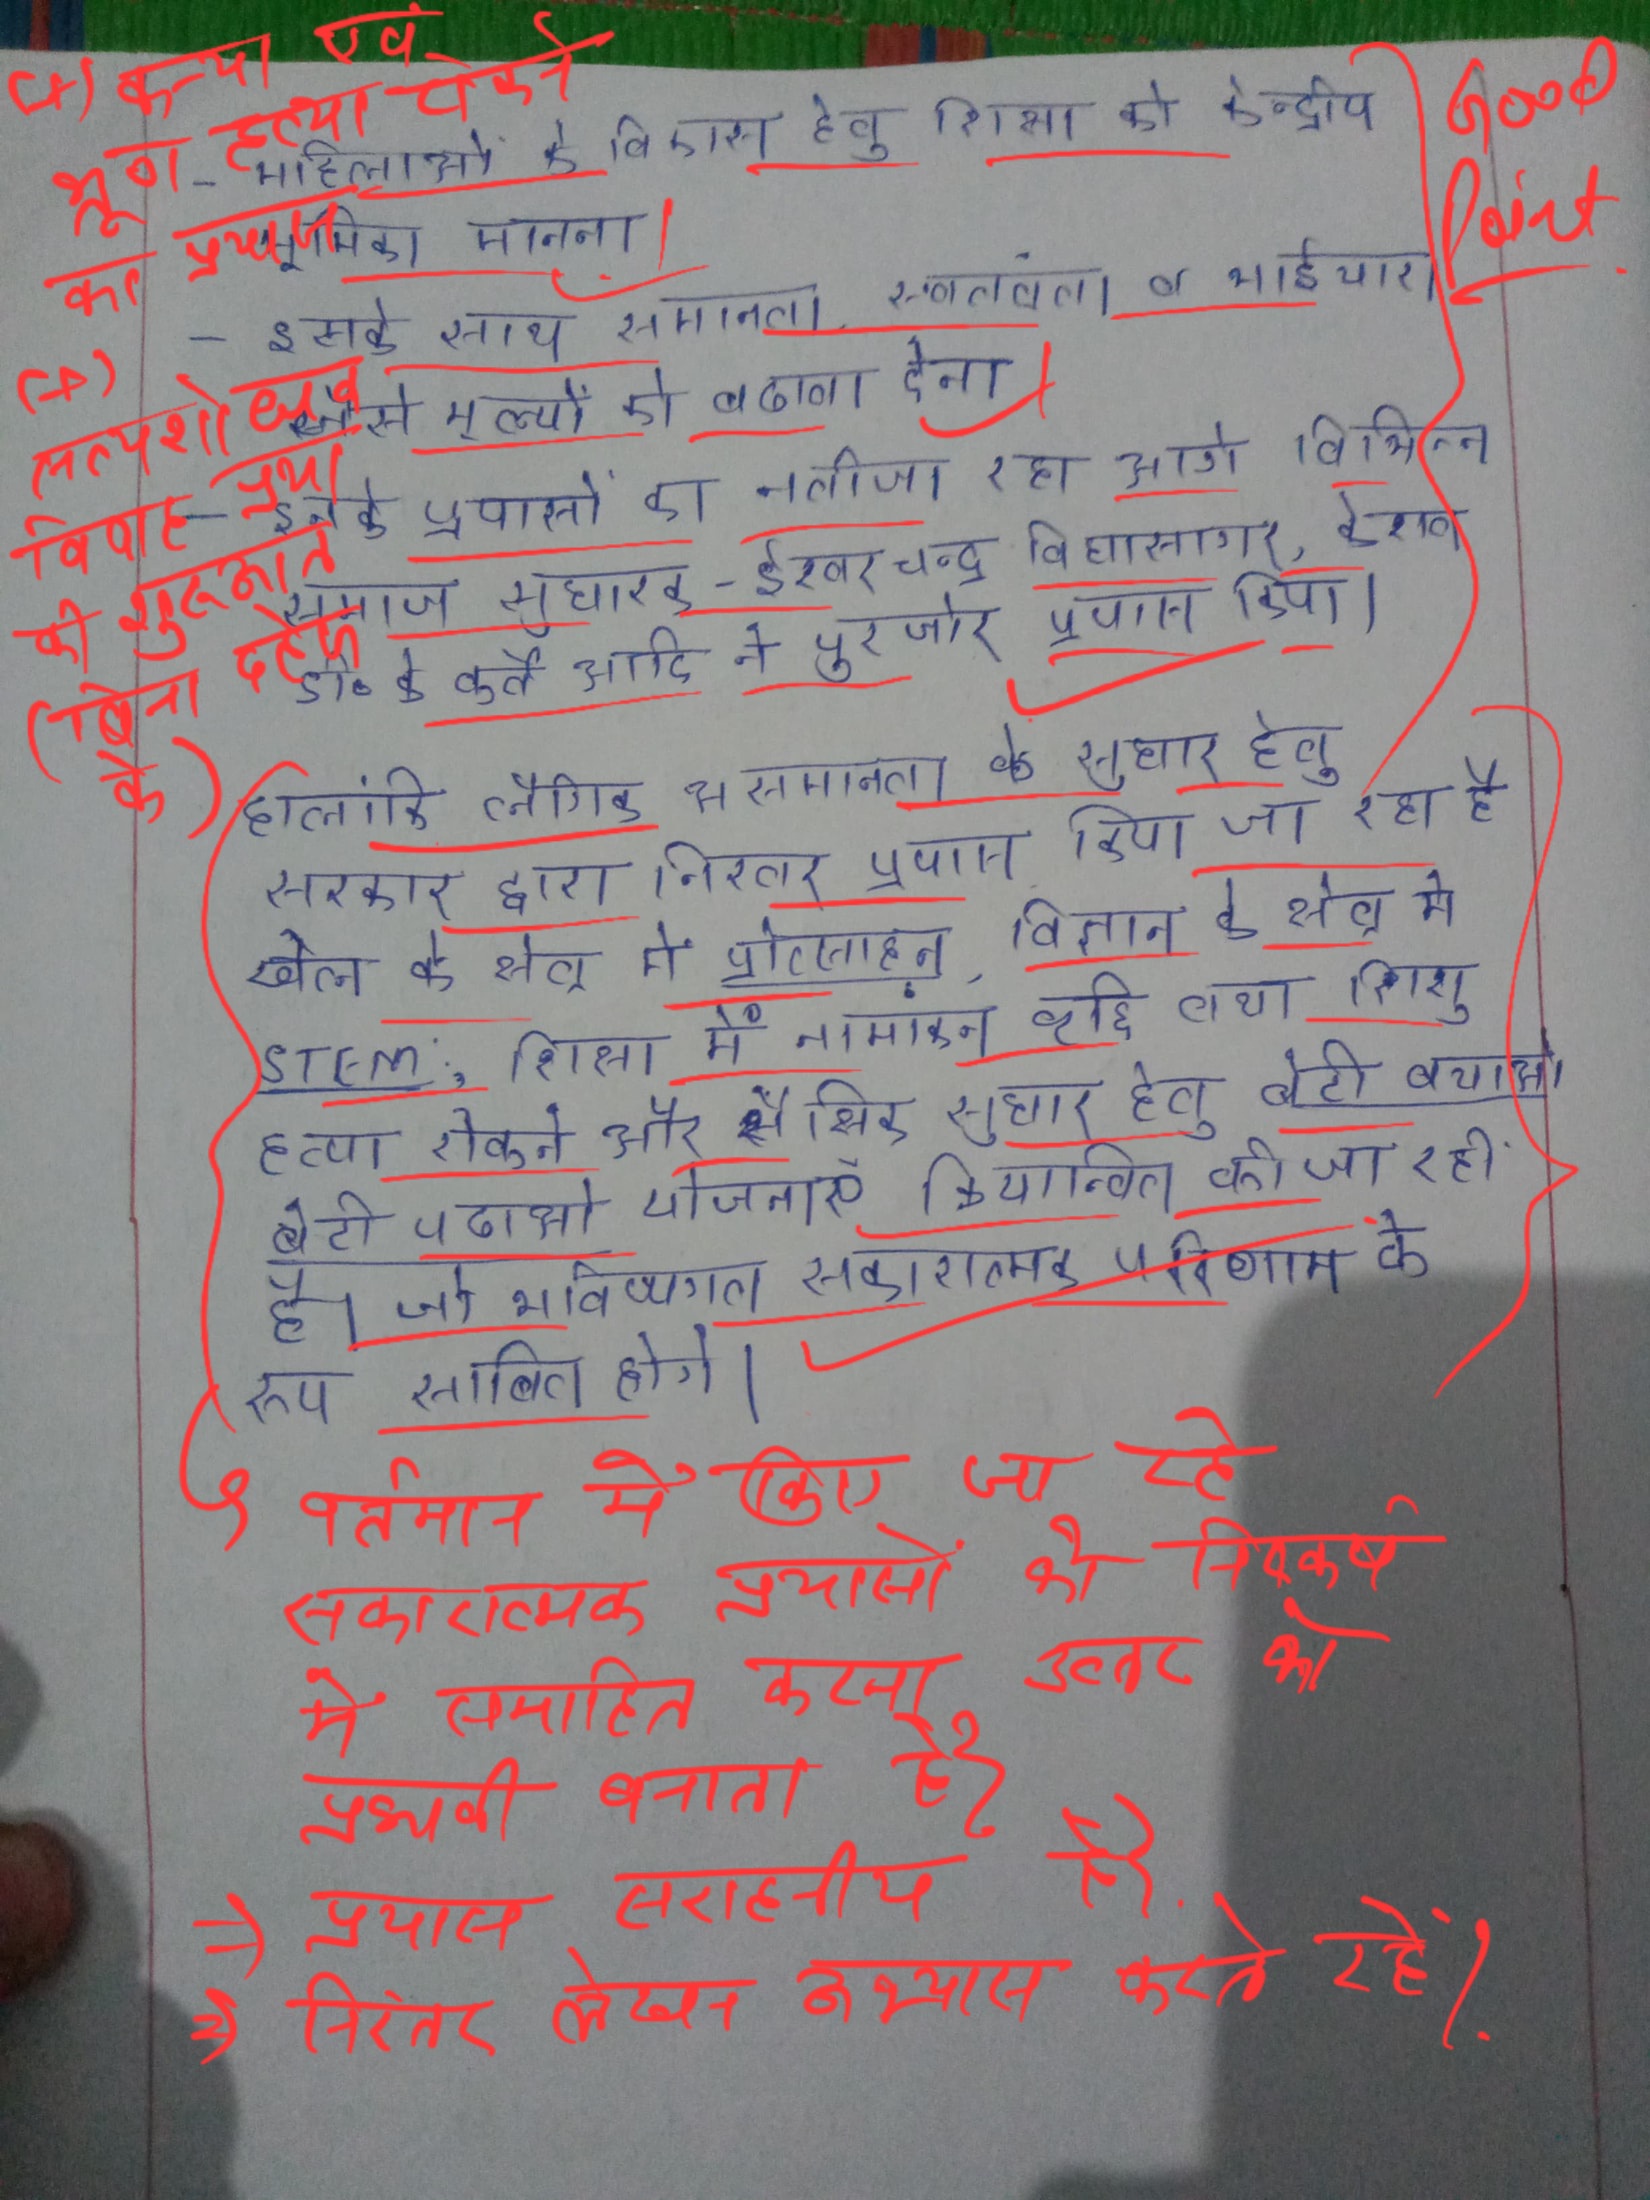 (+) कन्या एवं
भ्रूण हत्या रोकने
का प्रयास
- महिलाओं के विकास हेतु शिक्षा को केन्द्रीय
भूमिका मानना।
Good
Point
- इसके साथ समानता, स्वतंत्रता व भाईचारा
जैसे मूल्यों को बढावा देना।
(+)
सत्यशोधक
विवाह प्रथा
की शुरूआत
(बिना दहेज
के)
- इनके प्रयासों का नतीजा रहा आगे विभिन्न
समाज सुधारक - ईश्वरचन्द्र विद्यासागर, केशव
डी॰ के कर्वे आदि ने पुरजोर प्रयास किया।
हालांकि लैंगिक असमानता के सुधार हेतु
सरकार द्वारा निरतर प्रयास किया जा रहा है
खेल के क्षेत्र में प्रोत्साहन, विज्ञान के क्षेत्र मे
STEM, शिक्षा में नामांकन वृद्दि तथा शिशु
हत्या रोकने और शैक्षिक सुधार हेतु बेटी बचाओ
बेटी पढाओ योजनाएँ क्रियान्वित की जा रही
है। जो भविष्यगत सकारात्मक परिणाम के
रूप साबित होगे।
वर्तमान में किए जा रहे
सकारात्मक प्रयासों को निष्कर्ष
में समाहित करना उत्तर को
प्रभावी बनाता है।
→ प्रयास सराहनीय है।
→ निरंतर लेखन अभ्यास करते रहें।